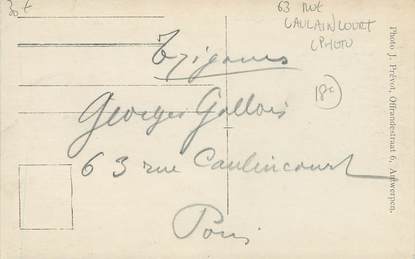 30 €
63 RUE
CAULAINCOURT
(PHOTO
Tziganes
18e
Georges Gallois
63 rue Caulincourt
Paris
Photo J. Prévot, Offrandestraat 6, Antwerpen.